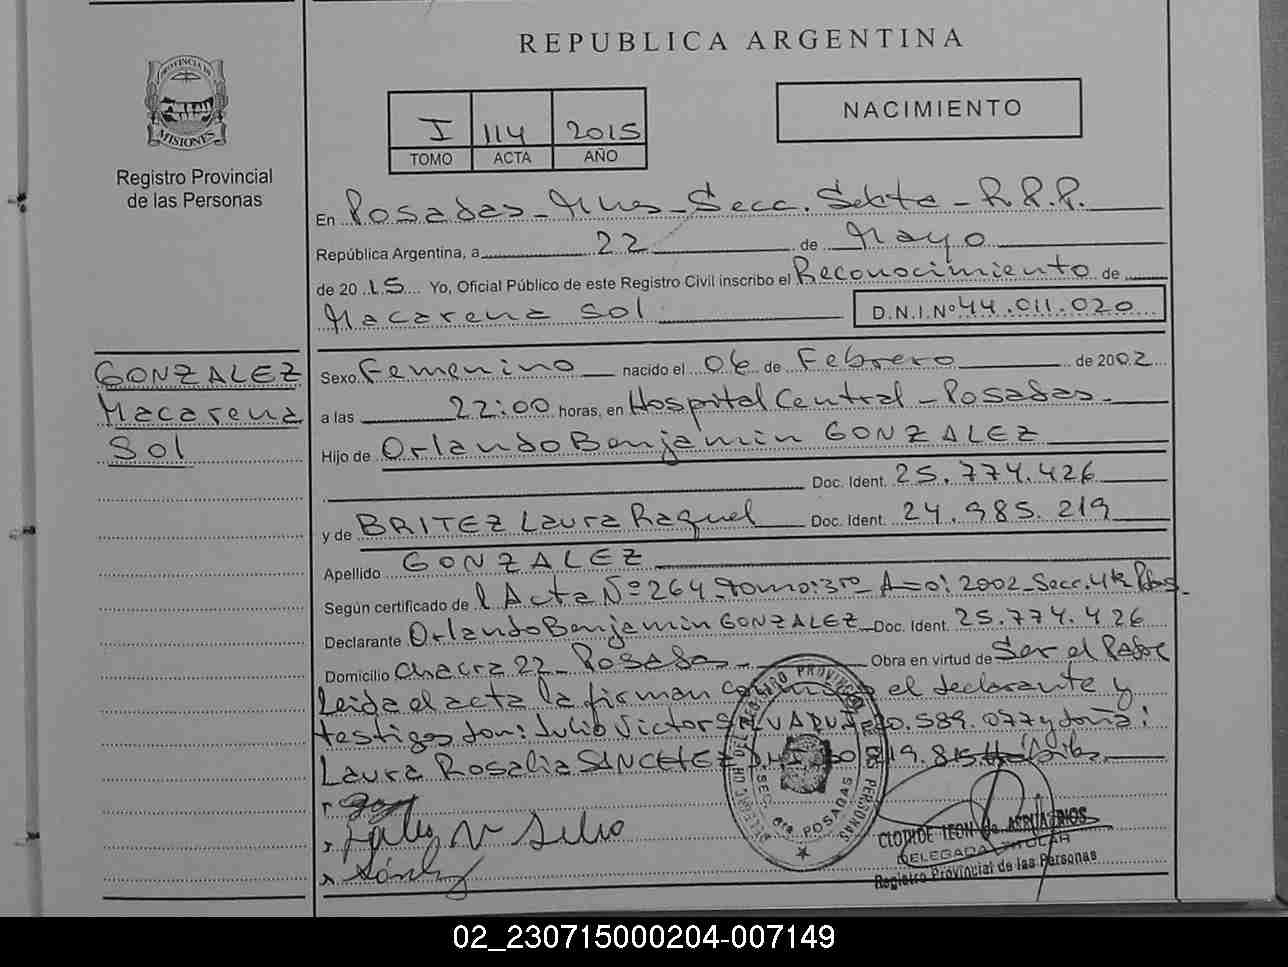 REPUBLICA ARGENTINA
PROVINCIA DE
MISIONES
Registro Provincial
de las Personas
I 114 2015
TOMO ACTA AÑO
NACIMIENTO
En Posadas - Mnes - Secc. Sexta - R.P.P.
República Argentina, a 22 de Mayo
de 2015 Yo, Oficial Público de este Registro Civil inscribo el Reconocimiento de
Macarena Sol D.N.I.Nº 44.011.020
GONZALEZ
Macarena
Sol
Sexo Femenino nacido el 06 de Febrero de 2002
a las 22:00 horas, en Hospital Central - Posadas -
Hijo de Orlando Benjamin GONZALEZ
Doc. Ident. 25.774.426
y de BRITEZ Laura Raquel Doc. Ident. 24.985.219
Apellido GONZALEZ
Según certificado de l Acta Nº 264 - tomo: 3ro - Año: 2002 - Secc. 4ta Pdas -
Declarante Orlando Benjamin GONZALEZ - Doc. Ident. 25.774.426
Domicilio Chacra 22 - Posadas - Obra en virtud de Ser el Padre
Leida el acta la firman conmigo el declarante y
testigos don: Julio Victor 0.589.077 y doña:
Laura Rosalia SANCHEZ 219.815
SEC. 6ta POSADAS
CLOTILDE LEON de
DELEGADA TITULAR
Registro Provincial de las Personas
02_230715000204-007149